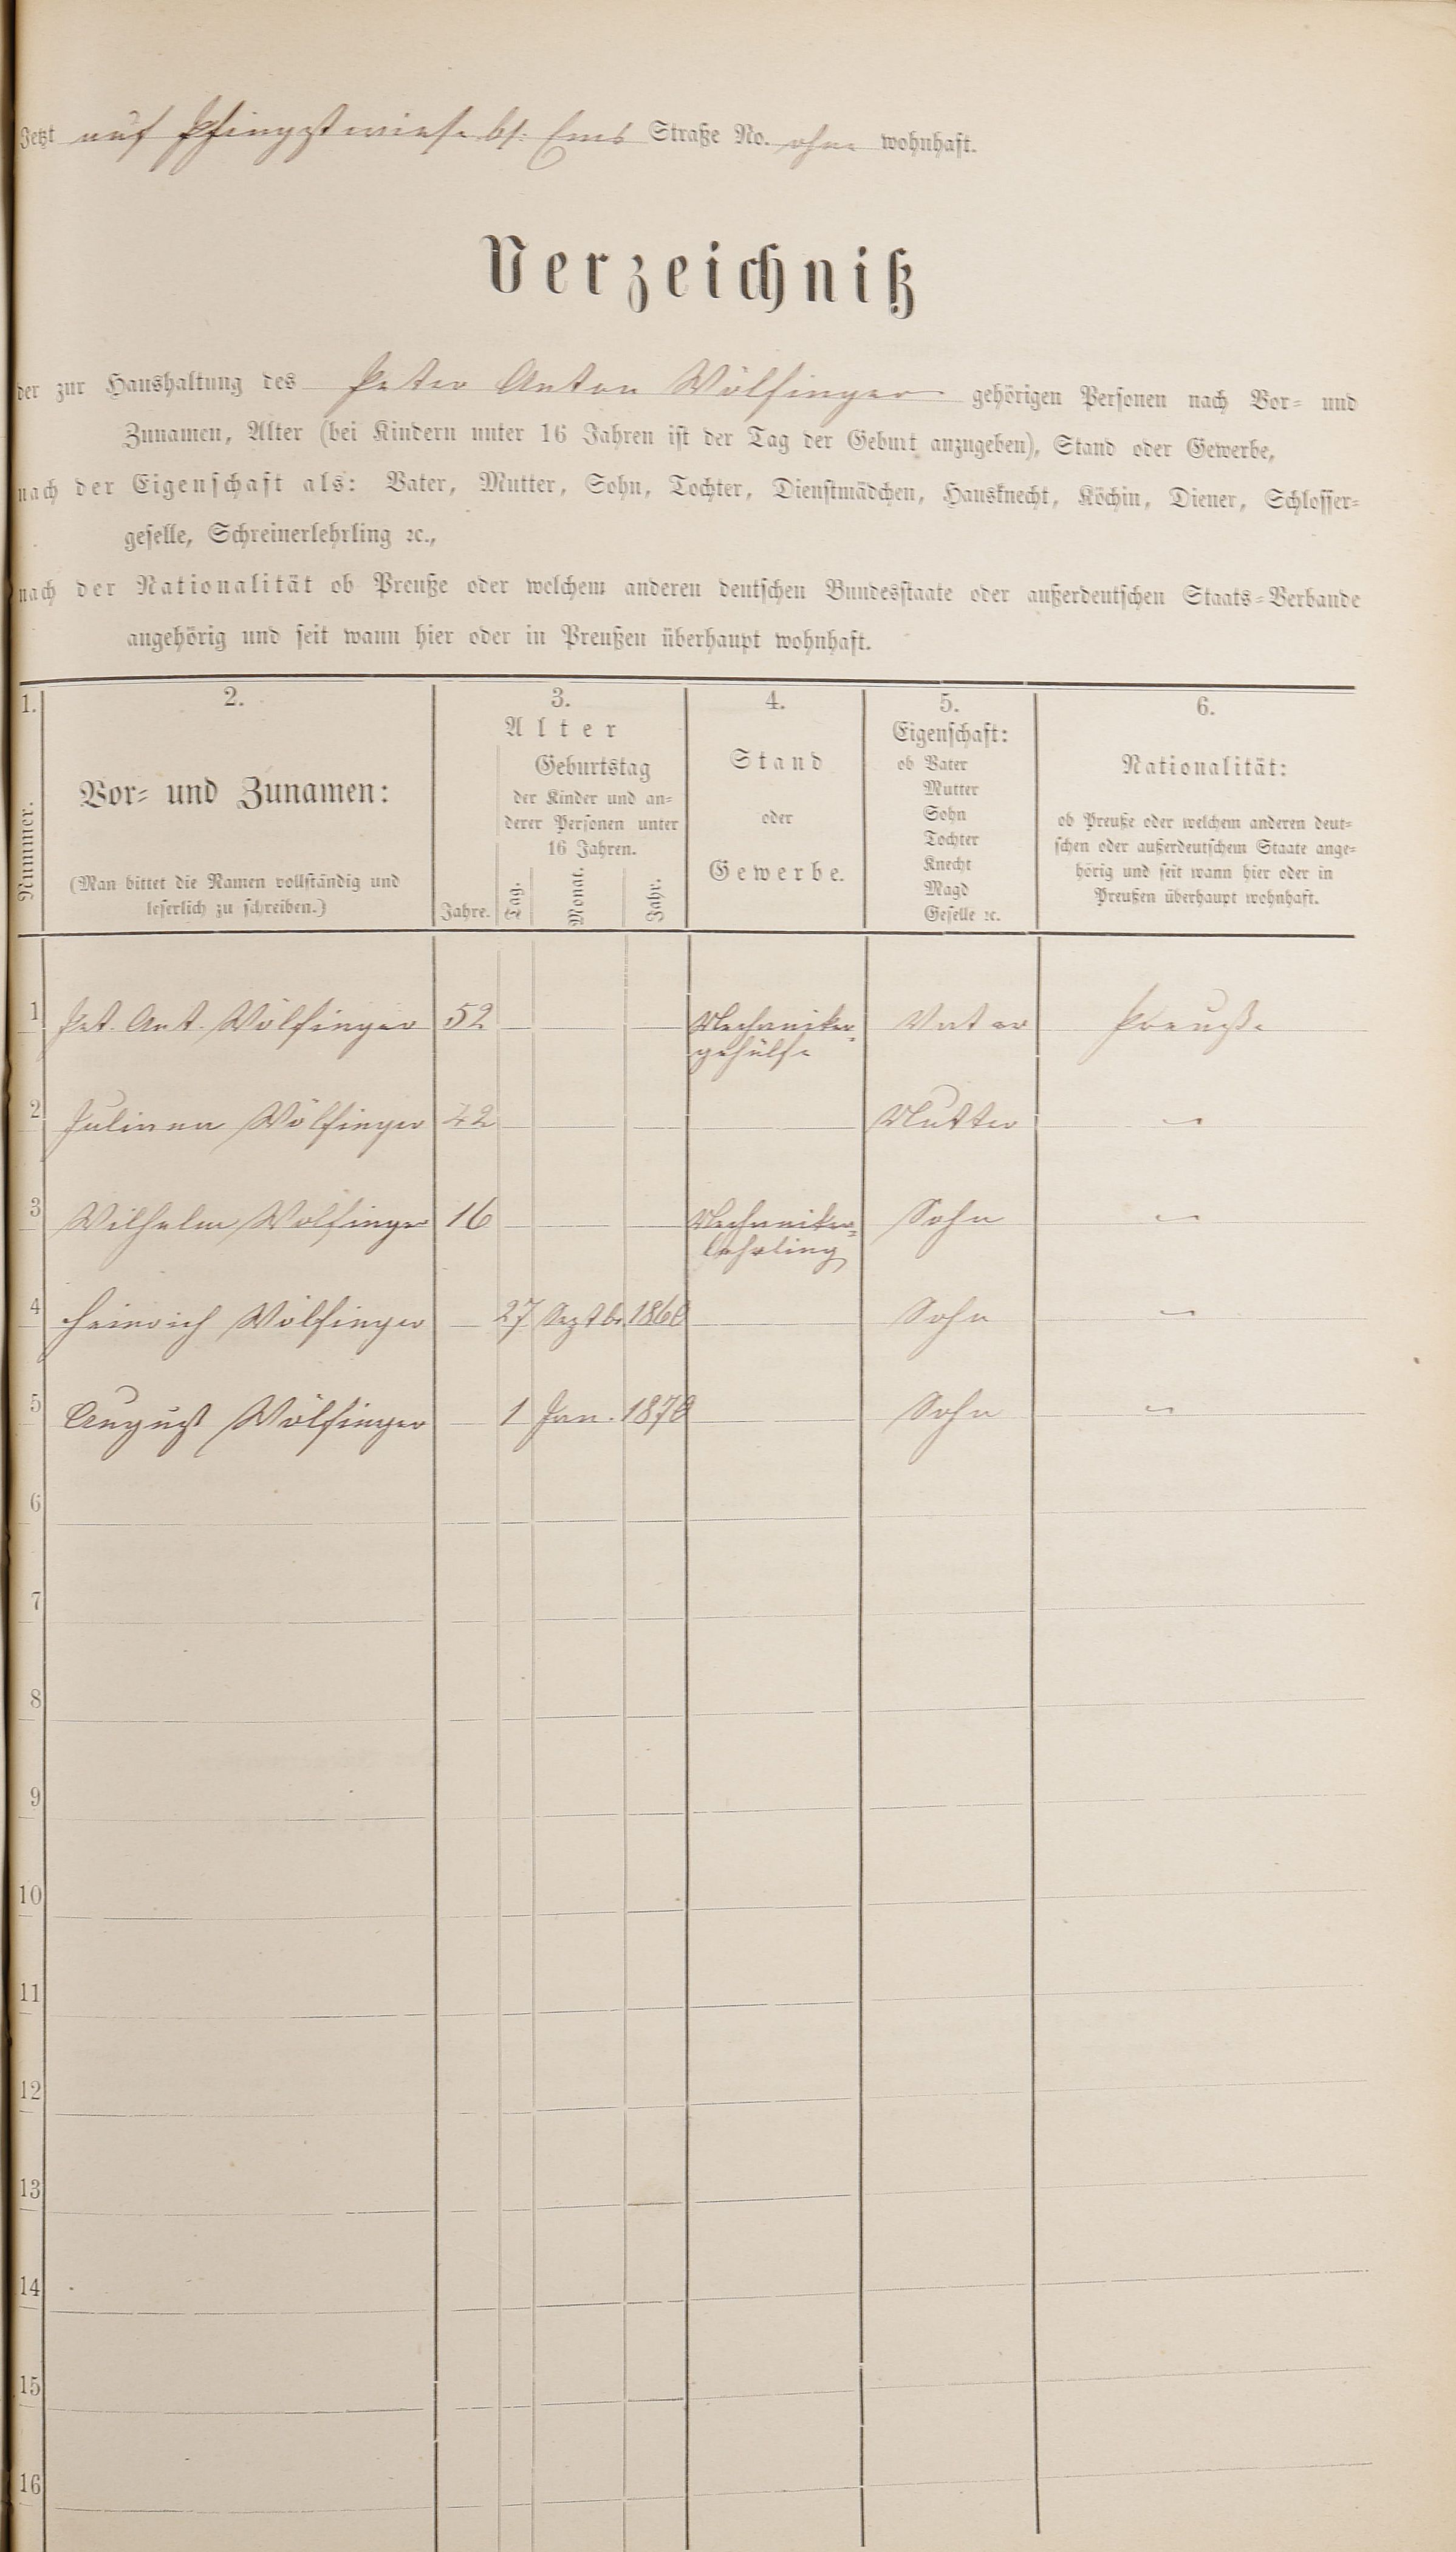 Jetzt auf Pfingstwiese bei Ems Straße No. ohne wohnhaft.
Verzeichniß
der zur Haushaltung des Peter Anton Wölfinger gehörigen Personen nach Vor- und
Zunamen, Alter (bei Kindern unter 16 Jahren ist der Tag der Geburt anzugeben), Stand oder Gewerbe,
nach der Eigenschaft als: Vater, Mutter, Sohn, Tochter, Dienstmädchen, Hausknecht, Köchin, Diener, Schlosser-
geselle, Schreinerlehrling ꝛc.,
nach der Nationalität ob Preuße oder welchem anderen deutschen Bundesstaate oder außerdeutschen Staats-Verbande
angehörig und seit wann hier oder in Preußen überhaupt wohnhaft.
1. 2. 3. 4. 5. 6.
Nummer.
Vor- und Zunamen:
(Man bittet die Namen vollständig und
leserlich zu schreiben.)
Alter
Jahre.
Geburtstag
der Kinder und an-
derer Personen unter
16 Jahren.
Tag. Monat. Jahr.
Stand
oder
Gewerbe.
Eigenschaft:
ob Vater
Mutter
Sohn
Tochter
Knecht
Magd
Geselle ꝛc.
Nationalität:
ob Preuße oder welchem anderen deut-
schen oder außerdeutschem Staate ange-
hörig und seit wann hier oder in
Preußen überhaupt wohnhaft.
1 Pet. Ant. Wölfinger 52 Mechaniker- Vater Preuße
gehülfe
2 Julianna Wölfinger 42 Mutter "
3 Wilhelm Wölfinger 16 Mechaniker- Sohn "
lehrling
4 Heinrich Wölfinger 27 Septbr. Sohn "
5 August Wölfinger 1 Jan. Sohn "
6
7
8
9
10
11
12
13
14
15
16